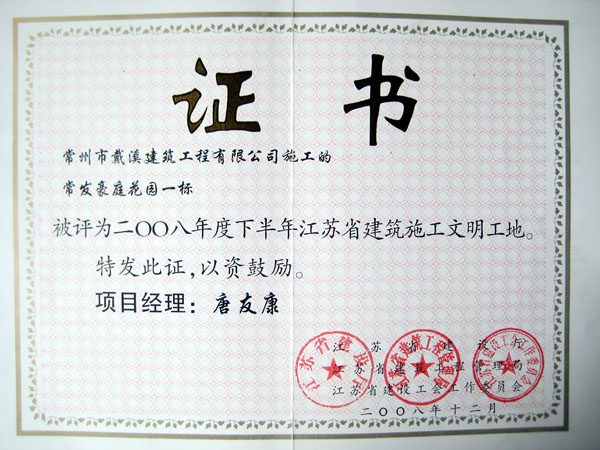 证书
常州市戴溪建筑工程有限公司施工的
常发豪庭花园一标
被评为二〇〇八年度下半年江苏省建筑施工文明工地。
特发此证，以资鼓励。
项目经理：唐友康
江苏省建设厅
江苏省建筑工程管理局
江苏省建设工会工作委员会
二〇〇八年十二月
江苏省建设厅
江苏省建筑工程管理局